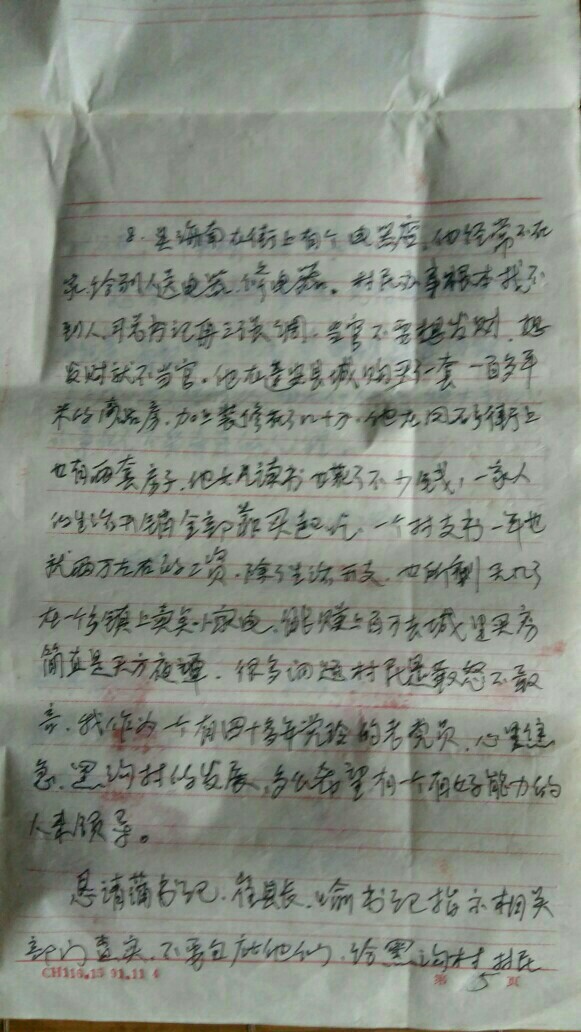 8. 吴海南在街上有个电器店，他经常不在
家，给别人送电器、修电器。村民办事根本找不
到人，可若书记再三强调，当官不要想发财，想
发财就不当官。他在县城购买一套一百多平
米的商品房，加上装修花了几十万，他在凤石乡街上
也有两套房子，他女儿读书也花了不少钱，一家人
的生活开销全部靠买起吃，一个村支书一年也
就两万左右的工资，除了生活开支，也所剩无几了
在一个乡镇上卖点小家电，能赚上百万去城里买房
简直是天方夜谭。很多问题村民是敢怒不敢
言，我作为一个有四十多年党龄的老党员，心里焦
急，黑沟村的发展，多么希望有一个有好能力的
人来领导。
恳请蒲书记、崔县长、喻书记指示相关
部门查实，不要包庇他们，给黑沟村村民
第 5 页